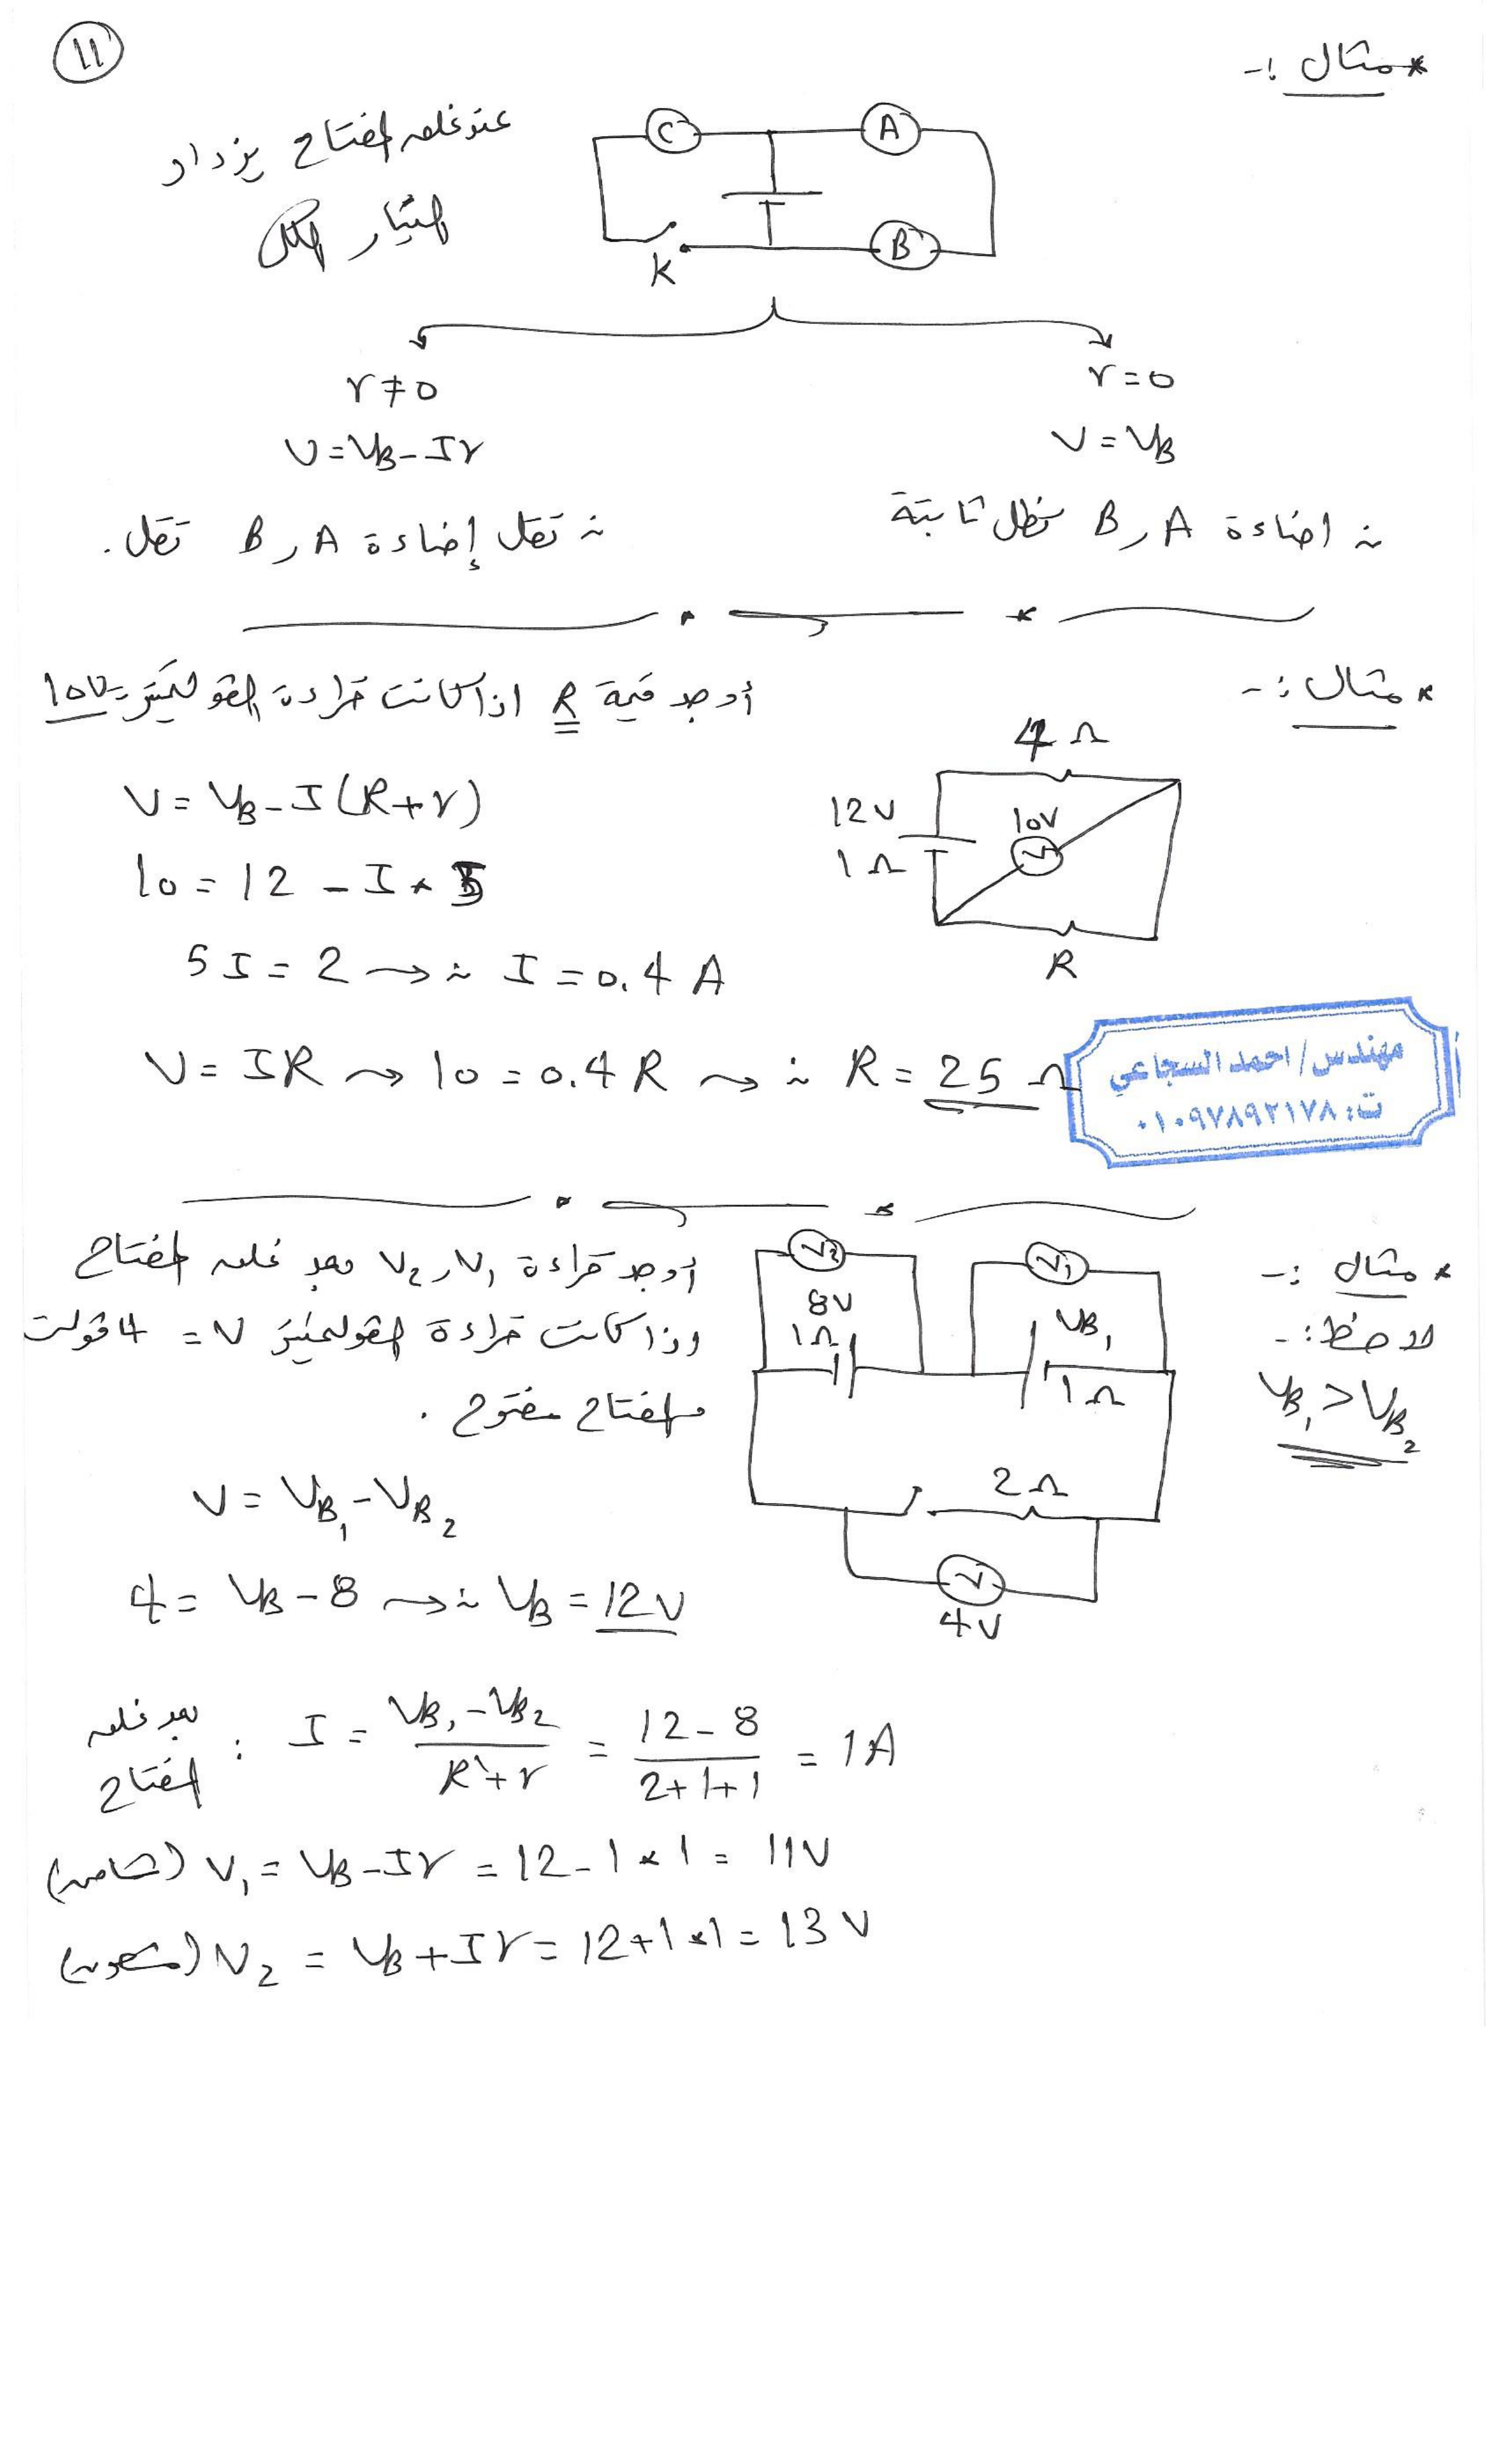 ١١
* مثال :-
عند غلق المفتاح يزداد
التيار الكلى
C
A
B
K
r = 0
V = VB
∴ اضاءة A و B تظل ثابتة
r ≠ 0
V = VB - Ir
∴ تقل إضاءة A و B تقل.
* مثال :-
أوجد قيمة R اذا كانت قراءة الفولتميتر = 10V
4 Ω
12V
1 Ω
10V
V
R
V = VB - I (R + r)
10 = 12 - I × 5
5 I = 2 → ∴ I = 0.4 A
V = IR → 10 = 0.4 R → ∴ R = 25 Ω
مهندس/ احمد السجاعي
ت: ٠١٠٩٧٨٩٢١٧٨
* مثال :-
لاحظ :-
VB1 > VB2
أوجد قراءة V1 و V2 بعد غلق المفتاح
وإذا كانت قراءة الفولتميتر V = 4 فولت
والمفتاح مفتوح .
V2
8V
1Ω
V1
VB1
1Ω
2Ω
V
4V
V = VB1 - VB2
4 = VB - 8 → ∴ VB = 12V
بعد غلق المفتاح : I = VB1 - VB2 / R' + r = 12 - 8 / 2 + 1 + 1 = 1A
(شاحن) V1 = VB - Ir = 12 - 1 × 1 = 11V
(مشحون) V2 = VB + Ir = 12 + 1 × 1 = 13 V